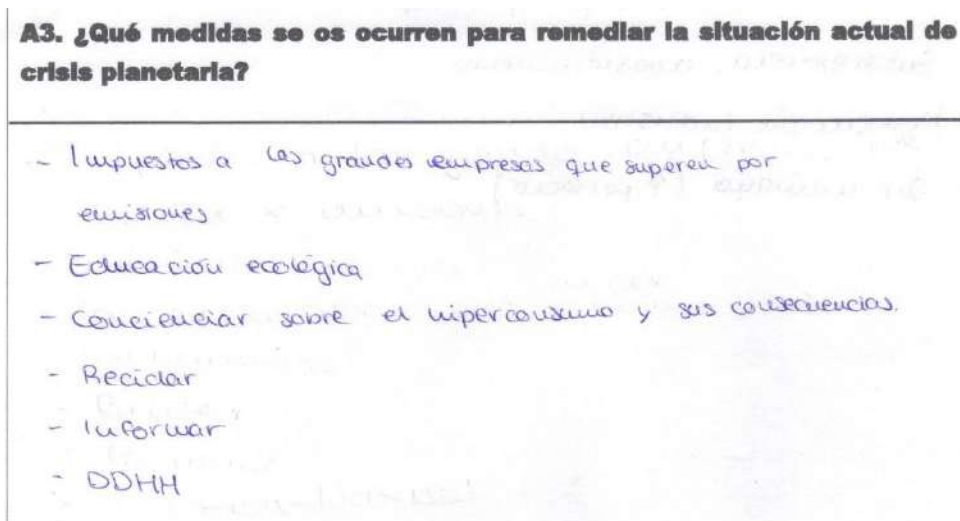 A3. ¿Qué medidas se os ocurren para remediar la situación actual de
crisis planetaria?
- Impuestos a las grandes empresas que superen por
emisiones
- Educación ecológica
- Concienciar sobre el hiperconsumo y sus consecuencias.
- Reciclar
- Informar
- DDHH